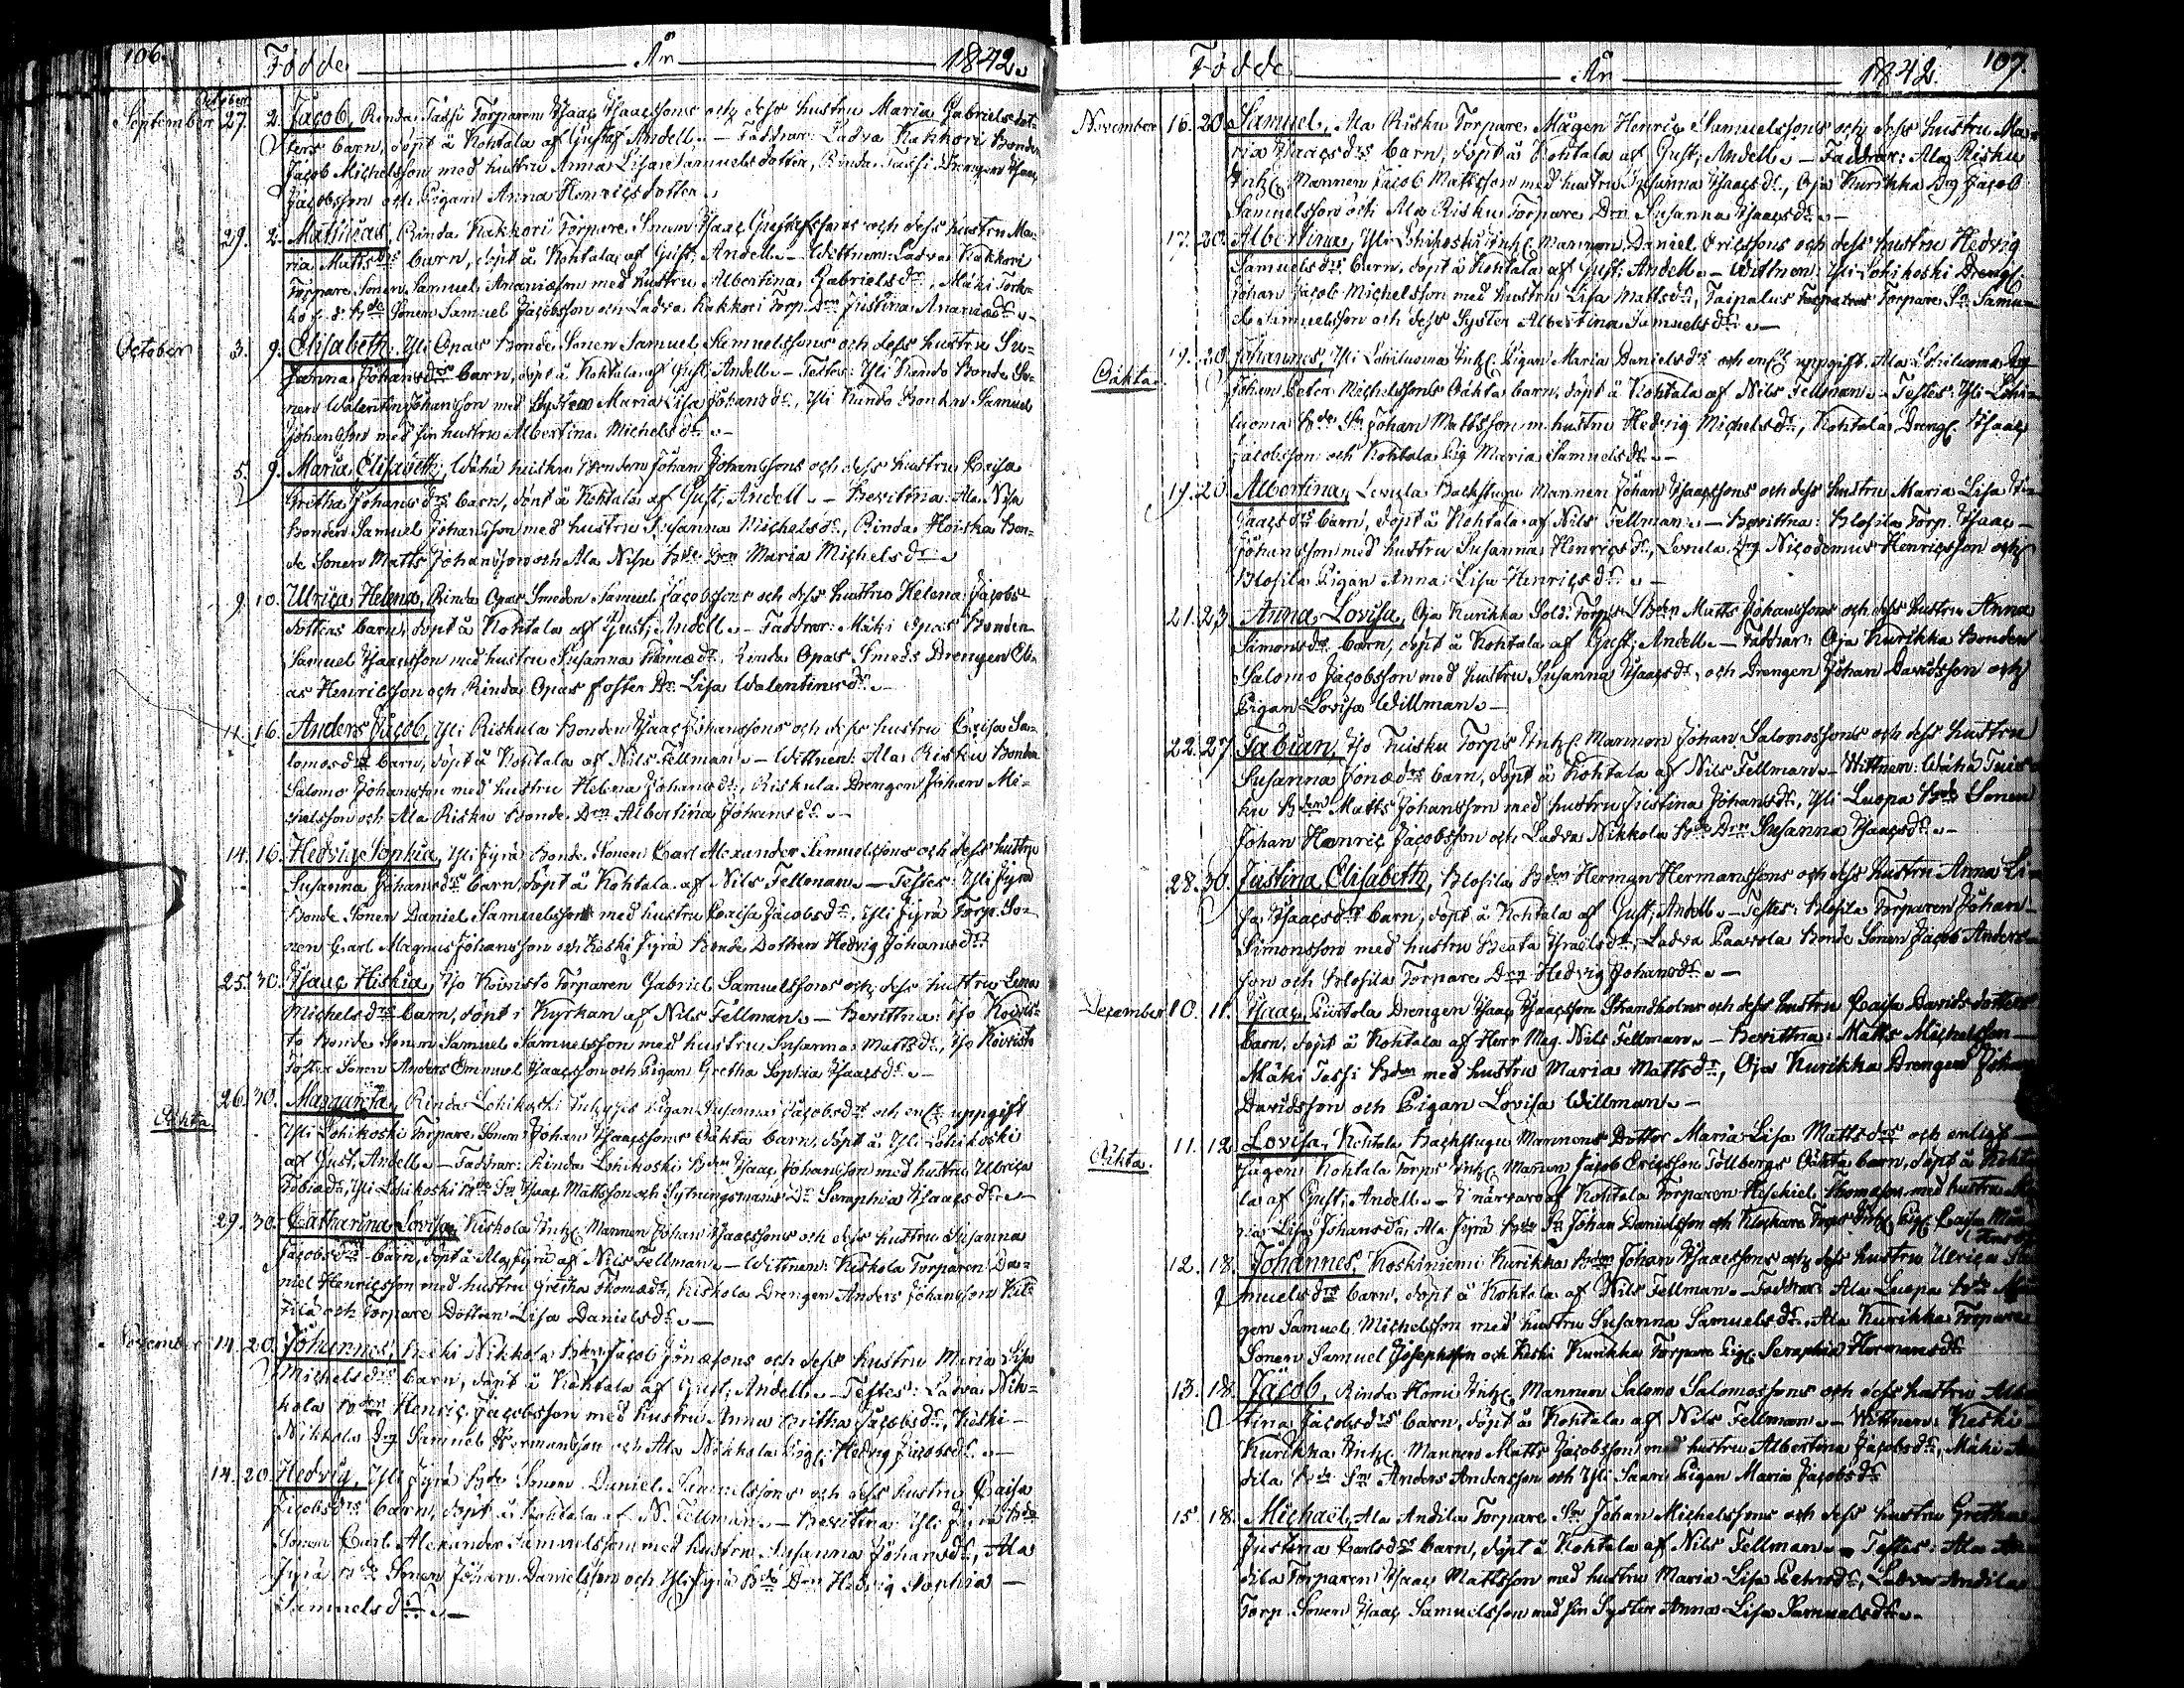 106.
Födde År 1842.
October
September 27. 2. Jacob, Rinda Tassi Torparen Isaac Isaacssons och dess hustru Maria Gabrielsdot-
ters barn, döpt å Kohtala af Gustaf Andell. – Faddrar: Ladva Kakkori Bonden
Jacob Michelsson med hustru Anna Lisa Samuelsdotter, Rinda Tassi Drengen Isaac
Jacobsson och Pigan Anna Henricsdotter.
29. 2. Mathias, Rinda Kakkori Torpare Sonen Isaac Gustafssons och dess hustru Ma-
ria Mattsdrs barn, döpt å Kohtala af Gust. Andell. – Wittnen: Ladva Kakkori
Torpare Sonen Samuel Ananiæson med hustru Albertina Gabrielsdr, Mäki
Sonen Samuel Jacobsson och Ladva Kakkori Torp. Drn Justina Ananiædr.
October 3. 9. Elisabeth, Yli Opas Bonde Sonen Samuel Samuelssons och dess hustru Su-
sanna Johansdrs barn, döpt å Kohtala af Gust. Andell. – Testes: Yli Kando Bonde So-
nen Walentin Johansson med Syster Maria Lisa Johansdr, Yli Kando Bonden Samuel
Johansson med sin hustru Albertina Michelsdr.
5. 9. Maria Elisabeth, Wähä Bonden Johan Johanssons och dess hustru Caisa
Gretha Johansdrs barn, döpt å Kohtala af Gust. Andell. – Bevittna: Ala Nisu
Bonden Samuel Johansson med hustru Susanna Michelsdr, Rinda Hoiska Bon-
de Sonen Matts Johansson och Ala Nisu Bde Drn Maria Michelsdr.
9. 10. Ulrica Helena, Rinda Opas Smeden Samuel Jacobssons och dess hustru Helena Jacobs-
dotters barn, döpt å Kohtala af Gust. Andell. – Faddrar: Mäki Opas Bonden
Samuel Isaacsson med hustru Susanna dr, Rinda Opas Smeds Drengen Eli-
as Henricsson och Rinda Opas foster Dr. Lisa Walentinsdr.
11. 16. Anders Jacob, Yli Riskula Bonden Isaac Johanssons och dess hustru Caisa Sa-
lomosdrs barn, döpt å Kohtala af Nils Fellman. – Wittnen: Ala Risku Bonden
Salomo Johansson med hustru Helena Johansdr, Riskula Drengen Johan Mi-
chelsson och Ala Risku Bonde Drn Albertina Johansdr.
14. 16. Hedvig Sophia, Yli Jyrä Bonde Sonen Carl Alexander Samuelssons och dess hustru
Susanna Johansdrs barn, döpt å Kohtala af Nils Fellman. – Testes: Yli Jyrä
Bonde Sonen Daniel Samuelsson med hustru Caisa Jacobsdr, Yli Jyrä Torp. So-
nen Carl Magnus Johansson och Keski Jyrä Bonde Dottren Hedvig Johansdr.
25. 30. Isaac Hiskia, Iso Koivisto Torparen Gabriel Samuelssons och dess hustru Lena
Michelsdrs barn, döpt i Kyrkan af Nils Fellman. – Bevittna: Iso Koivis-
to Bonde Sonen Samuel Samuelsson med hustru Susanna Mattsdr, Iso Koivisto
Foster Sonen Anders Emanuel Isaacsson och Pigan Gretha Sophia Isaacsdr.
26. 30. Margareta, Rinda Lohikoski Inhyses Pigan Susanna Jacobsdrs och enl. uppgift
Oäkta
Yli Lohikoski Torpare Sonen Johan Isaacssons Oäkta barn, döpt å Yli Lohikoski
af Gust. Andell. – Faddrar: Rinda Lohikoski Bden Isaac Johansson med hustru Ulrica
Tobiædr, Yli Lohikoski Bde Sn Isaac Mattsson och Sytningsmans Dr Seraphia Isaacsdr.
29. 30. Catharina Lovisa, Kiskola Inh. Mannen Johan Isaacssons och dess hustru Susanna
Jacobsdrs barn, döpt å Ala Jyrä af Nils Fellman. – Wittnen: Kiskola Torparen Da-
niel Henricsson med hustru Gretha Thomædr, Kiskola Drengen Anders Johansson
och Torpare Dottren Lisa Danielsdr.
November 14. 20. Johannes, Keski Nikkola Bden Jacob Jonæsons och dess hustru Maria Lisa
Michelsdrs barn, döpt å Kohtala af Gust. Andell. – Testes: Ladva Nik-
kola Bden Henric Jacobsson med hustru Anna Gretha Jacobsdr, Keski
Nikkola Drg Samuel Hermansson och Ala Nikkola Pig. Hedvig Jacobsdr.
14. 20. Hedvig, Yli Jyrä Bde Sonen Daniel Samuelssons och dess hustru Caisa
Jacobsdrs barn, döpt å Kohtala af N. Fellman. – Bevittna: Yli Jyrä Bde
Sonen Carl Alexander Samuelsson med hustru Susanna Johansdr, Ala
Jyrä Bde Sonen Johan Danielsson och Yli Jyrä Bde Drn Hedvig Sophia
Samuelsdr.
107.
Födde År 1842.
November 16. 20. Samuel, Ala Risku Torpare Mågen Henric Samuelssons och dess hustru Ma-
ria Isaacsdrs barn, döpt å Kohtala af Gust. Andell. – Faddrar: Ala Risku
Inh. Mannen Jacob Mattsson med hustru Susanna Isaacsdr, Oja Kurikka Drg Jacob
Samuelsson och Ala Risku Torpare Drn Susanna Isaacsdr.
17. 20. Albertina, Yli Lohikoski Inh. Mannen Daniel Ericssons och dess hustru Hedvig
Samuelsdrs barn, döpt å Kohtala af Gust. Andell. – Wittnen: Yli Lohikoski Dreng.
Johan Jacob Michelsson med hustru Lisa Mattsdr, Taipalus Torpare Sn Samu-
el Samuelsson och dess Syster Albertina Samuelsdr.
19. 20. Johannes, Yli Lohiluoma Inh. Pigan Maria Danielsdrs och enl. uppgift Ala Lohiluoma Drg
Oäkta
Johan Peter Michelssons Oäkta barn, döpt å Kohtala af Nils Fellman. – Testes: Yli Lohi-
luoma Bde Sn Johan Mattsson m. hustru Hedvig Michelsdr, Kohtala Dreng. Isaac
Jacobsson och Kohtala Pig. Maria Samuelsdr.
19. 20. Albertina, Backstugu Mannen Johan Isaacssons och dess hustru Maria Lisa
Isaacsdrs barn, döpt å Kohtala af Nils Fellman. – Bevittna: Blofila Torp. Isaac
Johansson med hustru Susanna Henricsdr, Drg Nicodemus Henricsson och
Blofila Pigan Anna Lisa Henricsdr.
21. 23. Anna Lovisa, Oja Kurikka Sold. Torps Bden Matts Johanssons och dess hustru Anna
Simonsdrs barn, döpt å Kohtala af Gust. Andell. – Faddrar: Oja Kurikka Bonden
Salomo Jacobsson med hustru Susanna Isaacsdr, och Drengen Johan Davidsson och
Pigan Lovisa Willman.
22. 27. Fabian, Iso Tuisku Torps Inh. Mannen Johan Salomossons och dess hustru
Susanna Jonædrs barn, döpt å Kohtala af Nils Fellman. – Wittnen: Wähä Tuis-
ku Bden Matts Johansson med hustru Justina Johansdr, Yli Luopa Bde Sonen
Johan Henric Jacobsson och Ladva Nikkola Bde Drn Susanna Isaacsdr.
28. 30. Justina Elisabeth, Blofila Bden Herman Hermanssons och dess hustru Anna Li-
sa Isaacsdrs barn, döpt å Kohtala af Gust. Andell. – Testes: Blofila Torparen Johan
Simonsson med hustru Beata Israelsdr, Ladva Paavola Bonde Sonen Jacob Anders-
son och Blofila Torpare Drn Hedvig Johansdr.
December 10. 11. Isaac, Pirtola Drengen Isaac Isaacsson Strandholms och dess hustru Caisa Davidsdotters
barn, döpt å Kohtala af Herr Mag. Nils Fellman. – Bevittna: Matts Michelsson
Mäki Tassi Bden med hustru Maria Mattsdr, Oja Kurikka Drengen Johan
Davidsson och Pigan Lovisa Willman.
11. 12. Lovisa, Kohtala Backstugu Mannens Dotter Maria Lisa Mattsdrs och enligt
Oäkta.
Kohtala Torps Inh. Mannen Jacob Ericsson Tollbergs Oäkta barn, döpt å Kohta-
la af Gust. Andell. – I närvaro af Kohtala Torparen Heschiel Thomasson med hustru Ma-
ria Lisa Johansdr, Ala Jyrä Bde Sn Johan Danielsson och Klockare Torps Inh. Pig. Caisa
12. 18. Johannes, Koskiniemi Kurikka Bden Johan Isaacssons och dess hustru Ulrica Sa-
muelsdrs barn, döpt å Kohtala af Nils Fellman. – Faddrar: Ala Luopa Bde Må-
gen Samuel Michelsson med hustru Susanna Samuelsdr, Ala Kurikka Torpare
Sonen Samuel Josephsson och Keski Kurikka Torpare Pig. Seraphia Hermansdr.
13. 18. Jacob, Rinda Homi Inh. Mannen Salomo Salomossons och dess hustru Alber-
tina Jacobsdrs barn, döpt å Kohtala af Nils Fellman. – Wittnen: Keski
Kurikka Inh. Mannen Matts Jacobsson med hustru Albertina Jacobsdr, Mäki An-
dila Bde Sn Anders Andersson och Yli Saari Pigan Maria Jacobsdr
15. 18. Michaël, Ala Andila Torpare Sn Johan Michelssons och dess hustru Gretha
Justina Carlsdrs barn, döpt å Kohtala af Nils Fellman. – Testes: Ala An-
dila Torparen Isaac Mattsson med hustru Maria Lisa Petersdr, Ladva Andila
Torp. Sonen Isaac Samuelsson med sin Syster Anna Lisa Samuelsdr.